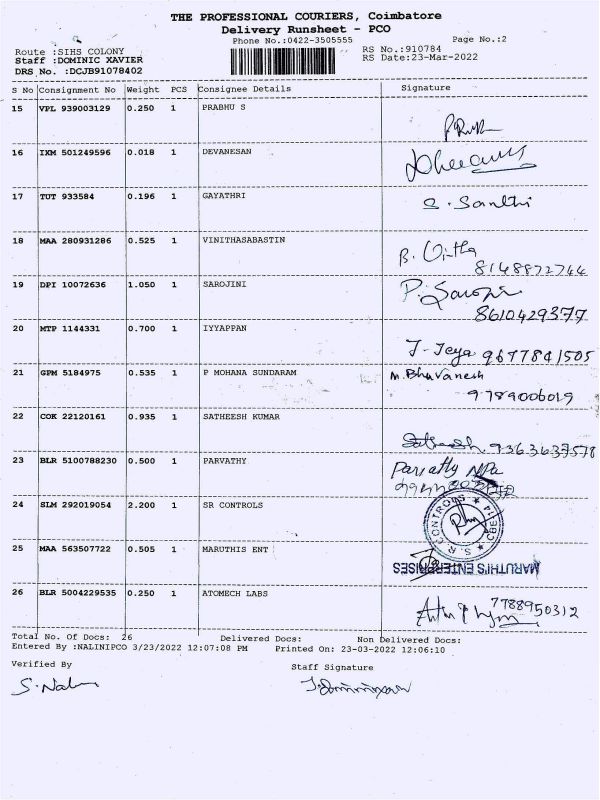 THE PROFESSIONAL COURIERS, Coimbatore
Delivery Runsheet - PCO
Phone No.:0422-3505555 Page No.:2
Route :SIHS COLONY RS No.:910784
Staff :DOMINIC XAVIER RS Date:23-Mar-2022
DRS No. :DCJB91078402
S No Consignment No Weight PCS Consignee Details Signature
15 VPL 939003129 0.250 1 PRABHU S
16 IXM 501249596 0.018 1 DEVANESAN
17 TUT 933584 0.196 1 GAYATHRI
S. Santhi
18 MAA 280931286 0.525 1 VINITHASABASTIN
B.
8148872744
19 DPI 10072636 1.050 1 SAROJINI
P. Sarojini
8610429377
20 MTP 1144331 0.700 1 IYYAPPAN
J-Jeya 9677841505
21 GPM 5184975 0.535 1 P MOHANA SUNDARAM
M.Bhuvanesh
9789006019
22 COK 22120161 0.935 1 SATHEESH KUMAR
Satheesh 9363637578
23 BLR 5100788230 0.500 1 PARVATHY
24 SLM 292019054 2.200 1 SR CONTROLS
S.R CONTROLS ★ CBE-14 ★
25 MAA 563507722 0.505 1 MARUTHIS ENT
MARUTHI'S ENTERPRISES
26 BLR 5004229535 0.250 1 ATOMECH LABS
7788950312
Total No. Of Docs: 26 Delivered Docs: Non Delivered Docs:
Entered By :NALINIPCO 3/23/2022 12:07:08 PM Printed On: 23-03-2022 12:06:10
Verified By Staff Signature